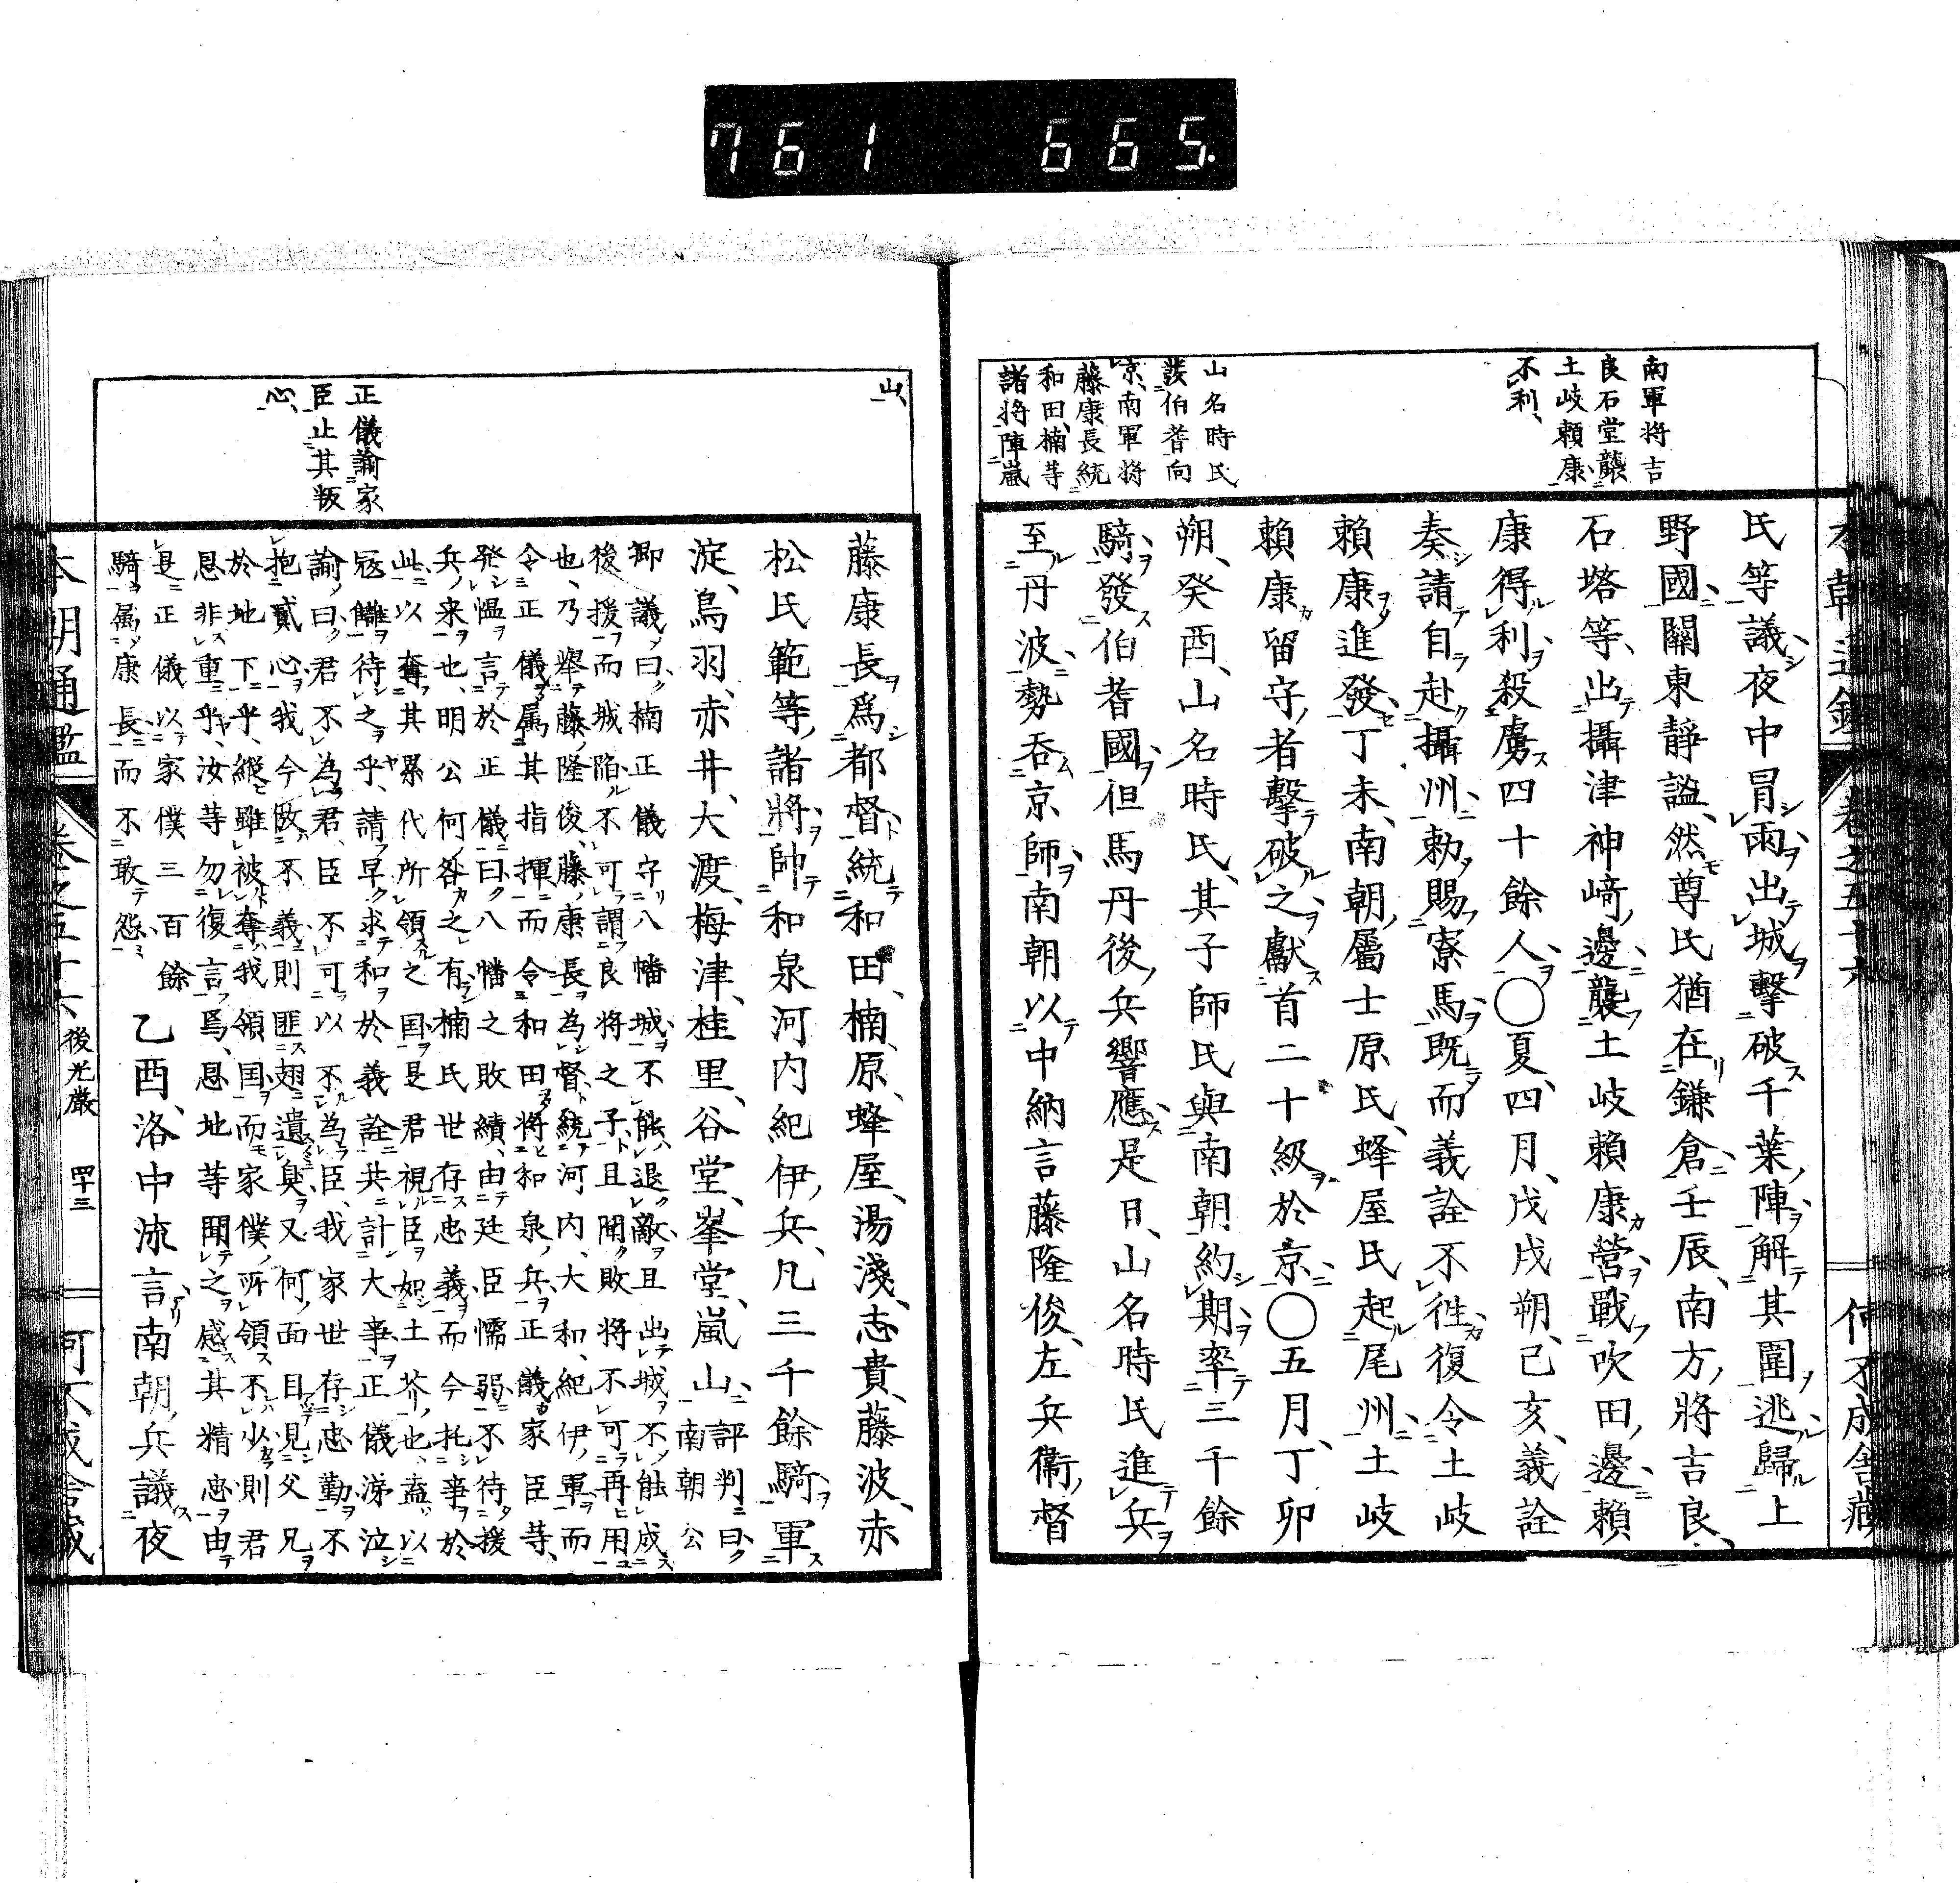 761 665.
南軍將吉
良石堂襲
土岐賴康
不利、
山名時氏
發伯耆向
京、南軍將
藤康長統
和田、楠等
諸將陣嵐
氏等議夜中冒雨出城擊破千葉陣解其圍逃歸上
野國關東靜謐、然尊氏猶在鎌倉壬辰、南方將吉良、
石塔等、出攝津神﨑邊襲土岐賴康營戰吹田邊賴
康得利殺虜四十餘人○夏、四月、戊戌朔、己亥、義詮
奏請自赴攝州勅賜寮馬既而義詮不徃復令土岐
賴康進發丁未、南朝屬士原氏、蜂屋氏起尾州土岐
賴康留守者擊破之獻首二十級於京○五月、丁卯
朔、癸酉、山名時氏、其子師氏與南朝約期率三千餘
騎發伯耆國但馬丹後兵響應是日、山名時氏進兵
至丹波勢呑京師南朝以中納言藤隆俊、左兵衞督
本朝通鑑 卷之五十六
山、
正儀諭家
臣止其叛
心、
藤康長爲都督統和田、楠、原、蜂屋、湯淺、志貴、藤波、赤
松氏範等諸將帥和泉河内紀伊兵、凡三千餘騎軍
淀、鳥羽、赤井、大渡、梅津、桂里、谷堂、峯堂、嵐山
評判曰
南朝公
卿議曰楠正儀守八幡城不能退敵且出城不能成
後援而城陥不可謂良将之子且聞敗将不可再用
也、乃擧藤隆俊、藤康長為督統河内、大和、紀伊軍而
令正儀属其指揮而令和田将和泉兵正儀家臣等、
発愠言於正儀曰八幡之敗績、由廷臣懦弱不待援
兵来也、明公何咎之有楠氏世存忠義而今托事於
此以奪其累代所領之国是君視臣如土芥也、盍以
冦讎待之乎、請早求和於義詮共計大事正儀涕泣
諭曰君不為君、臣不可以不為臣、我家世存忠勤不
抱貳心我今敀不義則匪翅遺臭又何面目見父兄
於地下乎、縱雖被奪我領国而家僕所領不少則君
恩非重乎、汝等勿復言焉、恩地等聞之感其精忠由
是正儀以家僕三百餘
騎属康長而不敢怨
乙酉、洛中流言南朝兵議夜
本朝通鑑 卷之五十六 後光嚴 四十三